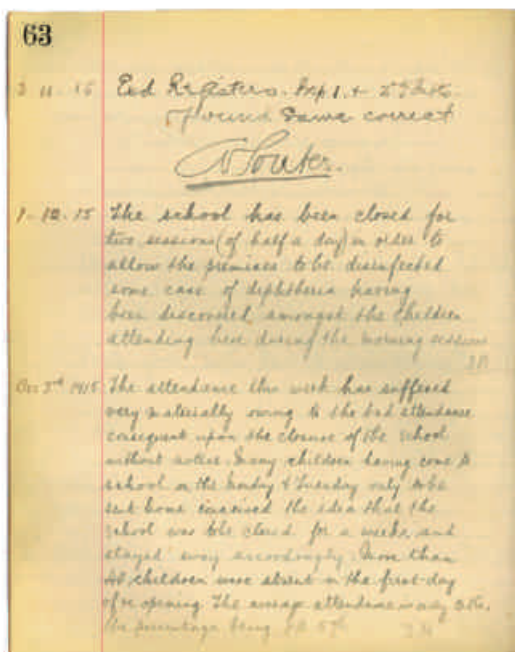 63
3 11 15 End Registers.
found same correct
1. 12. 15 The school has been closed for
two sessions (of half a day) in order to
allow the premises to be disinfected
some case of diphtheria having
been discovered amongst the children
attending here during the morning sessions
Dec 3rd 1915 The attendance this week has suffered
very materially owing to the bad attendance
consequent upon the closure of the school
without notice. Many children having come to
school on the Monday & Tuesday only to be
sent home conceived the idea that the
school was to be closed for a week and
stayed away accordingly. More than
40 children were absent on the first day
of re opening. The average attendance is only
the percentage being